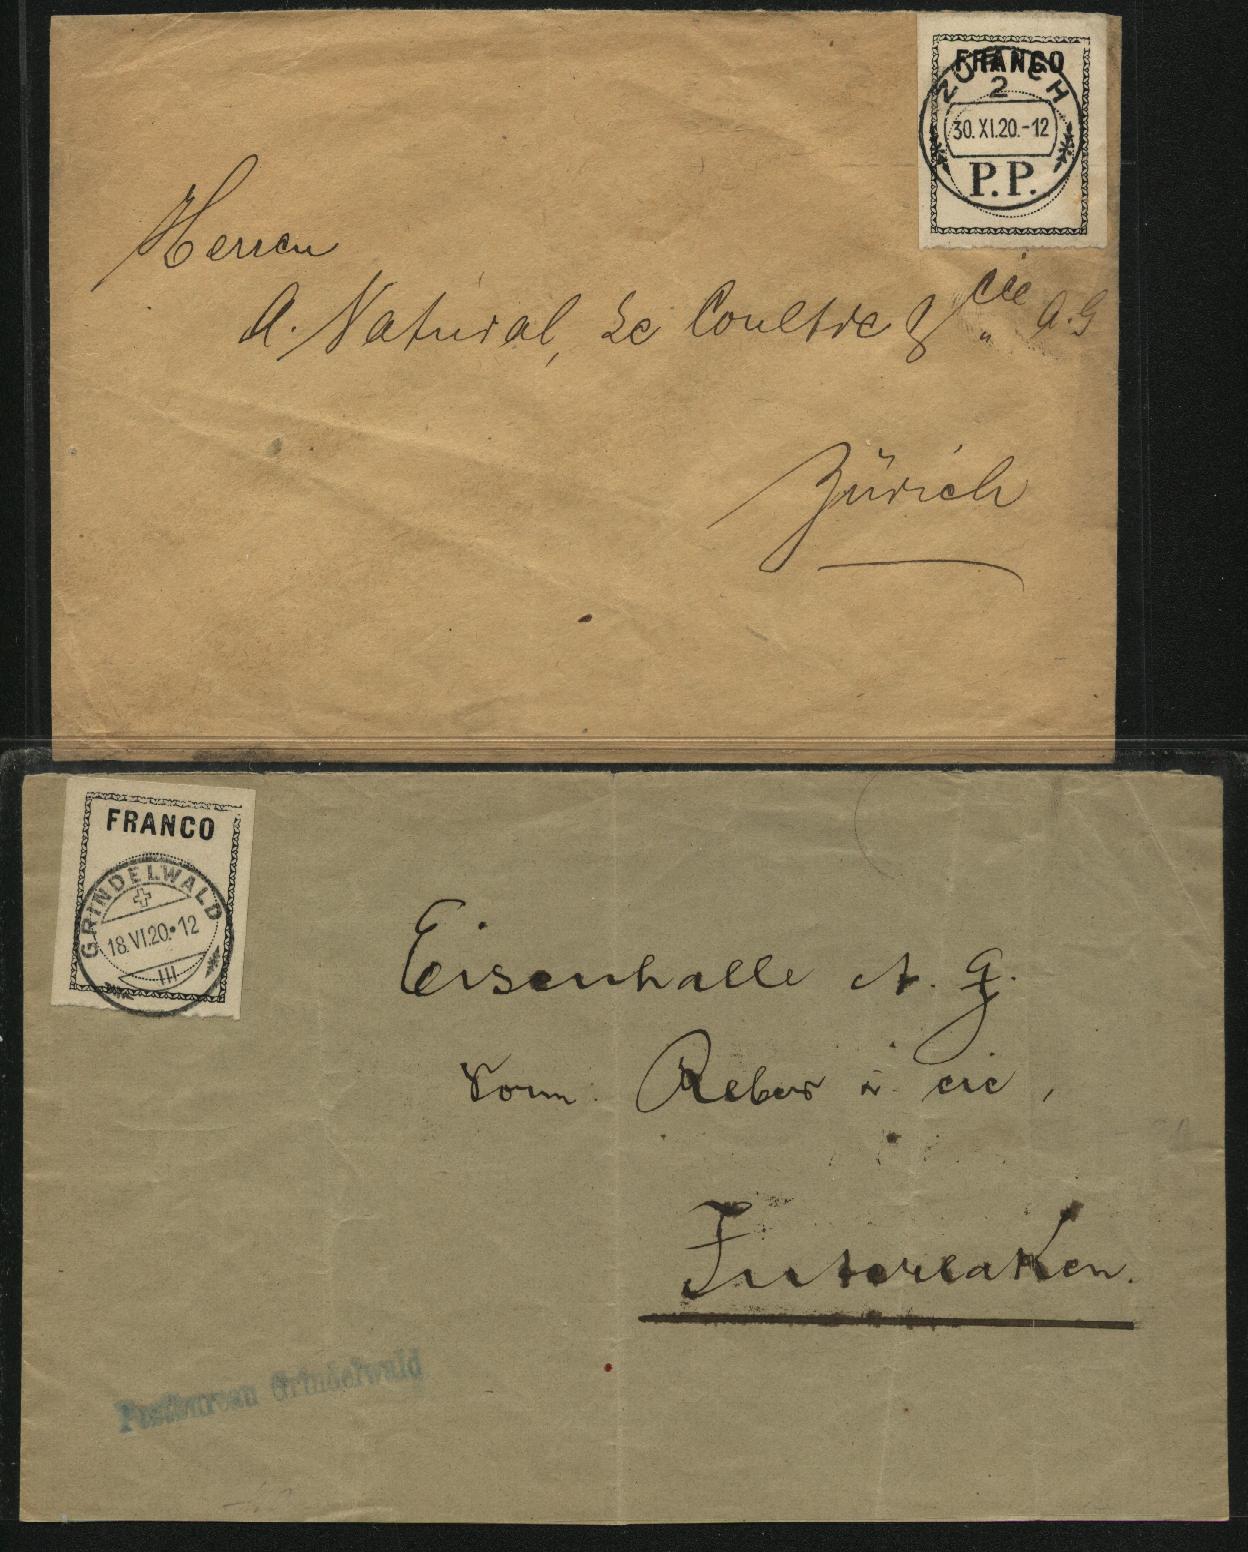 FRANCO
ZÜRICH
2
30.XI.20.-12
P.P.
Herren
A. Natural, Le Coultre & Cie A.G
Zürich
FRANCO
GRINDELWALD
18.VI.20.•12
III
Eisenhalle A. G.
vorm. Reber & cie,
Interlaken.
Postbureau Grindelwald